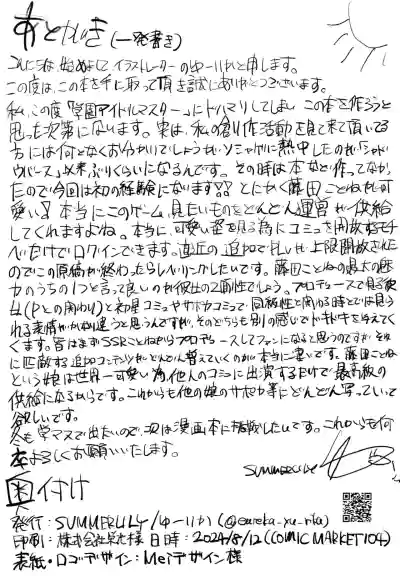 あとがき(一発書き)
こんにちは、始めまして イラストレーターの ゆーりかと申します。
この度は、この本を手に取って頂き誠にありがとうございます。
私、この度「学園アイドルマスター」にドハマリしてしまい この本を作ろうと
思った次第になります。実は、私の創作活動を見て来て頂いてる
方には何となくお分かりでしょうが ソシャゲに熱中したのが「シャド
ウバース」以来ぶりくらいになるんです。その時は本など作ってなかっ
たので今回は初の経験になります!! とにかく藤田ことねが可
愛い! 本当にこのゲーム、見たいものをどんどん運営が供給
してくれますよね。本当に、可愛い姿を見る為にコミュを開放するモチ
ベだけでログインできます。直近の追加で Pレベル上限開放された
のでこの原稿が終わったらレベリングしたいです。藤田ことねの最大の魅
力のうちの1つと言って良いのが彼女の二面性でしょう。プロデュースで見る彼
女(Pとの関わり)と初星コミュやサポカコミュで、同級生と関わる時とでは見ら
れる表情がかなり違うと思うんですが、そのどちらも別の感じでドキドキを与えてく
れます。皆はまずSSRことねからプロデュースしてファンになると思うのですが、それ
に匹敵する追加コンテンツがどんどん増えていくのが本当に凄いです。藤田ことね
という娘は世界一可愛い為他人のコミュに出演するだけで最高級の
供給になるからです。これからも他の娘のサポカ等にどんどん写っていって
欲しいです。
冬も学マスで出たいので、次は漫画本に挑戦したいです。これからも何
卒よろしくお願いいたします。
SUMMERLILY
奥付け
発行:SUMMERLILY/ゆーりか(@eureka_yu_rika)
印刷:株式会社栄光様 日時:2024/8/12(COMIC MARKET 104)
表紙・ロゴデザイン:Meiデザイン様